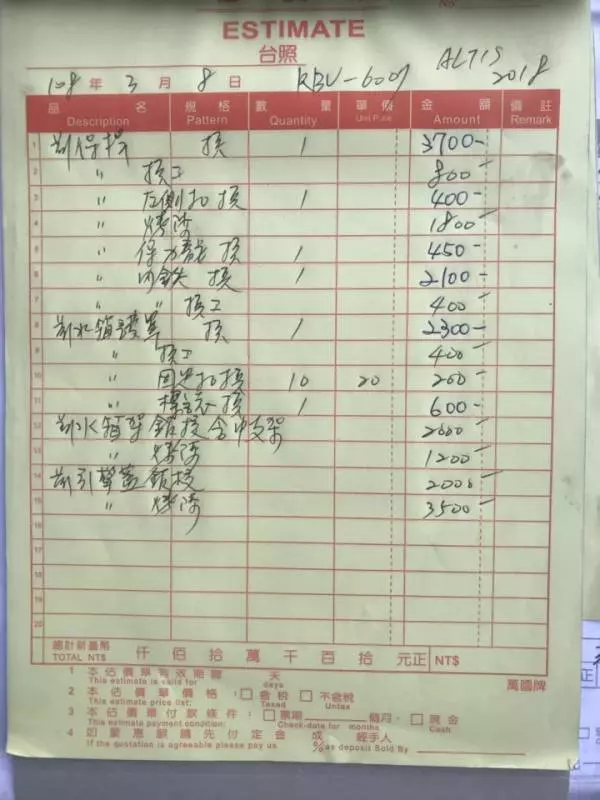 ESTIMATE
台照
108 年 3 月 8 日 RBU-6007 ALTIS
2018
品 名 規 格 數 量 單 價 金 額 備 註
Description Pattern Quantity Unit Price Amount Remark
1 前保桿 換 1 3700-
2 〃 換工 800-
3 〃 左側扣 換 1 400-
4 〃 烤漆 1800-
5 〃 保力龍 換 1 450-
6 〃 內鉄 換 1 2100-
7 〃 〃 換工 400-
8 前水箱護罩 換 1 2300-
9 〃 換工 400-
10 〃 固定扣換 10 20 200-
11 〃 標誌 換 1 600-
12 前水箱架 鈑技含中支架 2000-
13 〃 烤漆 1200-
14 前引擎蓋 鈑技 2000-
15 〃 烤漆 3500-
16
17
18
19
20
總計新臺幣 仟 佰 拾 萬 千 百 拾 元正 NT$
TOTAL NT$
1 本估價單有效期為 天 萬國牌
This estimate is valid for days
2 本估價單價格: □含稅 □不含稅
This estimate price list: Taxed Untax
3 本估價單付款條件: □票期 個月. □現金
This estimate payment condition: Check-date for months Cash
4 如蒙惠顧請先付定金 成 經手人
If the quotation is agreeable please pay us %as deposit Sold By